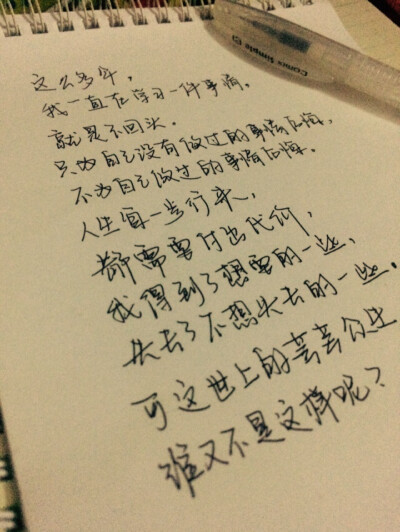 这么多年，
我一直在学习一件事情，
就是不回头，
只为自己没有做过的事情后悔，
不为自己做过的事情后悔。
人生每一步行来，
都需要付出代价，
我得到了想要的一些，
失去了不想失去的一些。
可这世上的芸芸众生
谁又不是这样呢？
Comix Simple